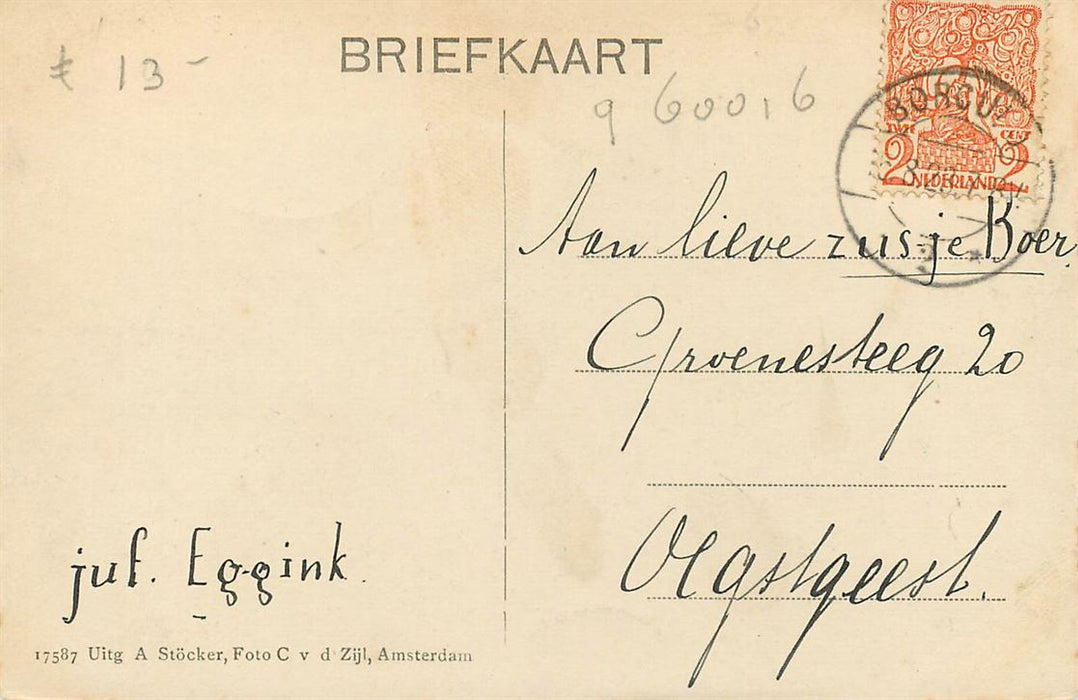 BRIEFKAART
13 -
9 60016
TWEE CENT
2 2
NEDERLAND
8.23.7
Aan lieve zus-je Boer.
Groenesteeg 20
Oegstgeest.
juf. Eggink.
17587 Uitg A Stöcker, Foto C v d Zijl, Amsterdam